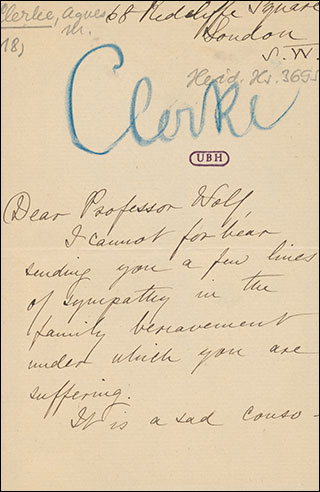 Clerke, Agnes
M.
18)
68 Redcliffe Square
London
S.W.
Heid. Hs. 3695
Clerke
UBH
Dear Professor Wolf,
I cannot forbear
sending you a few lines
of sympathy in the
family bereavement
under which you are
suffering.
It is a sad conso-